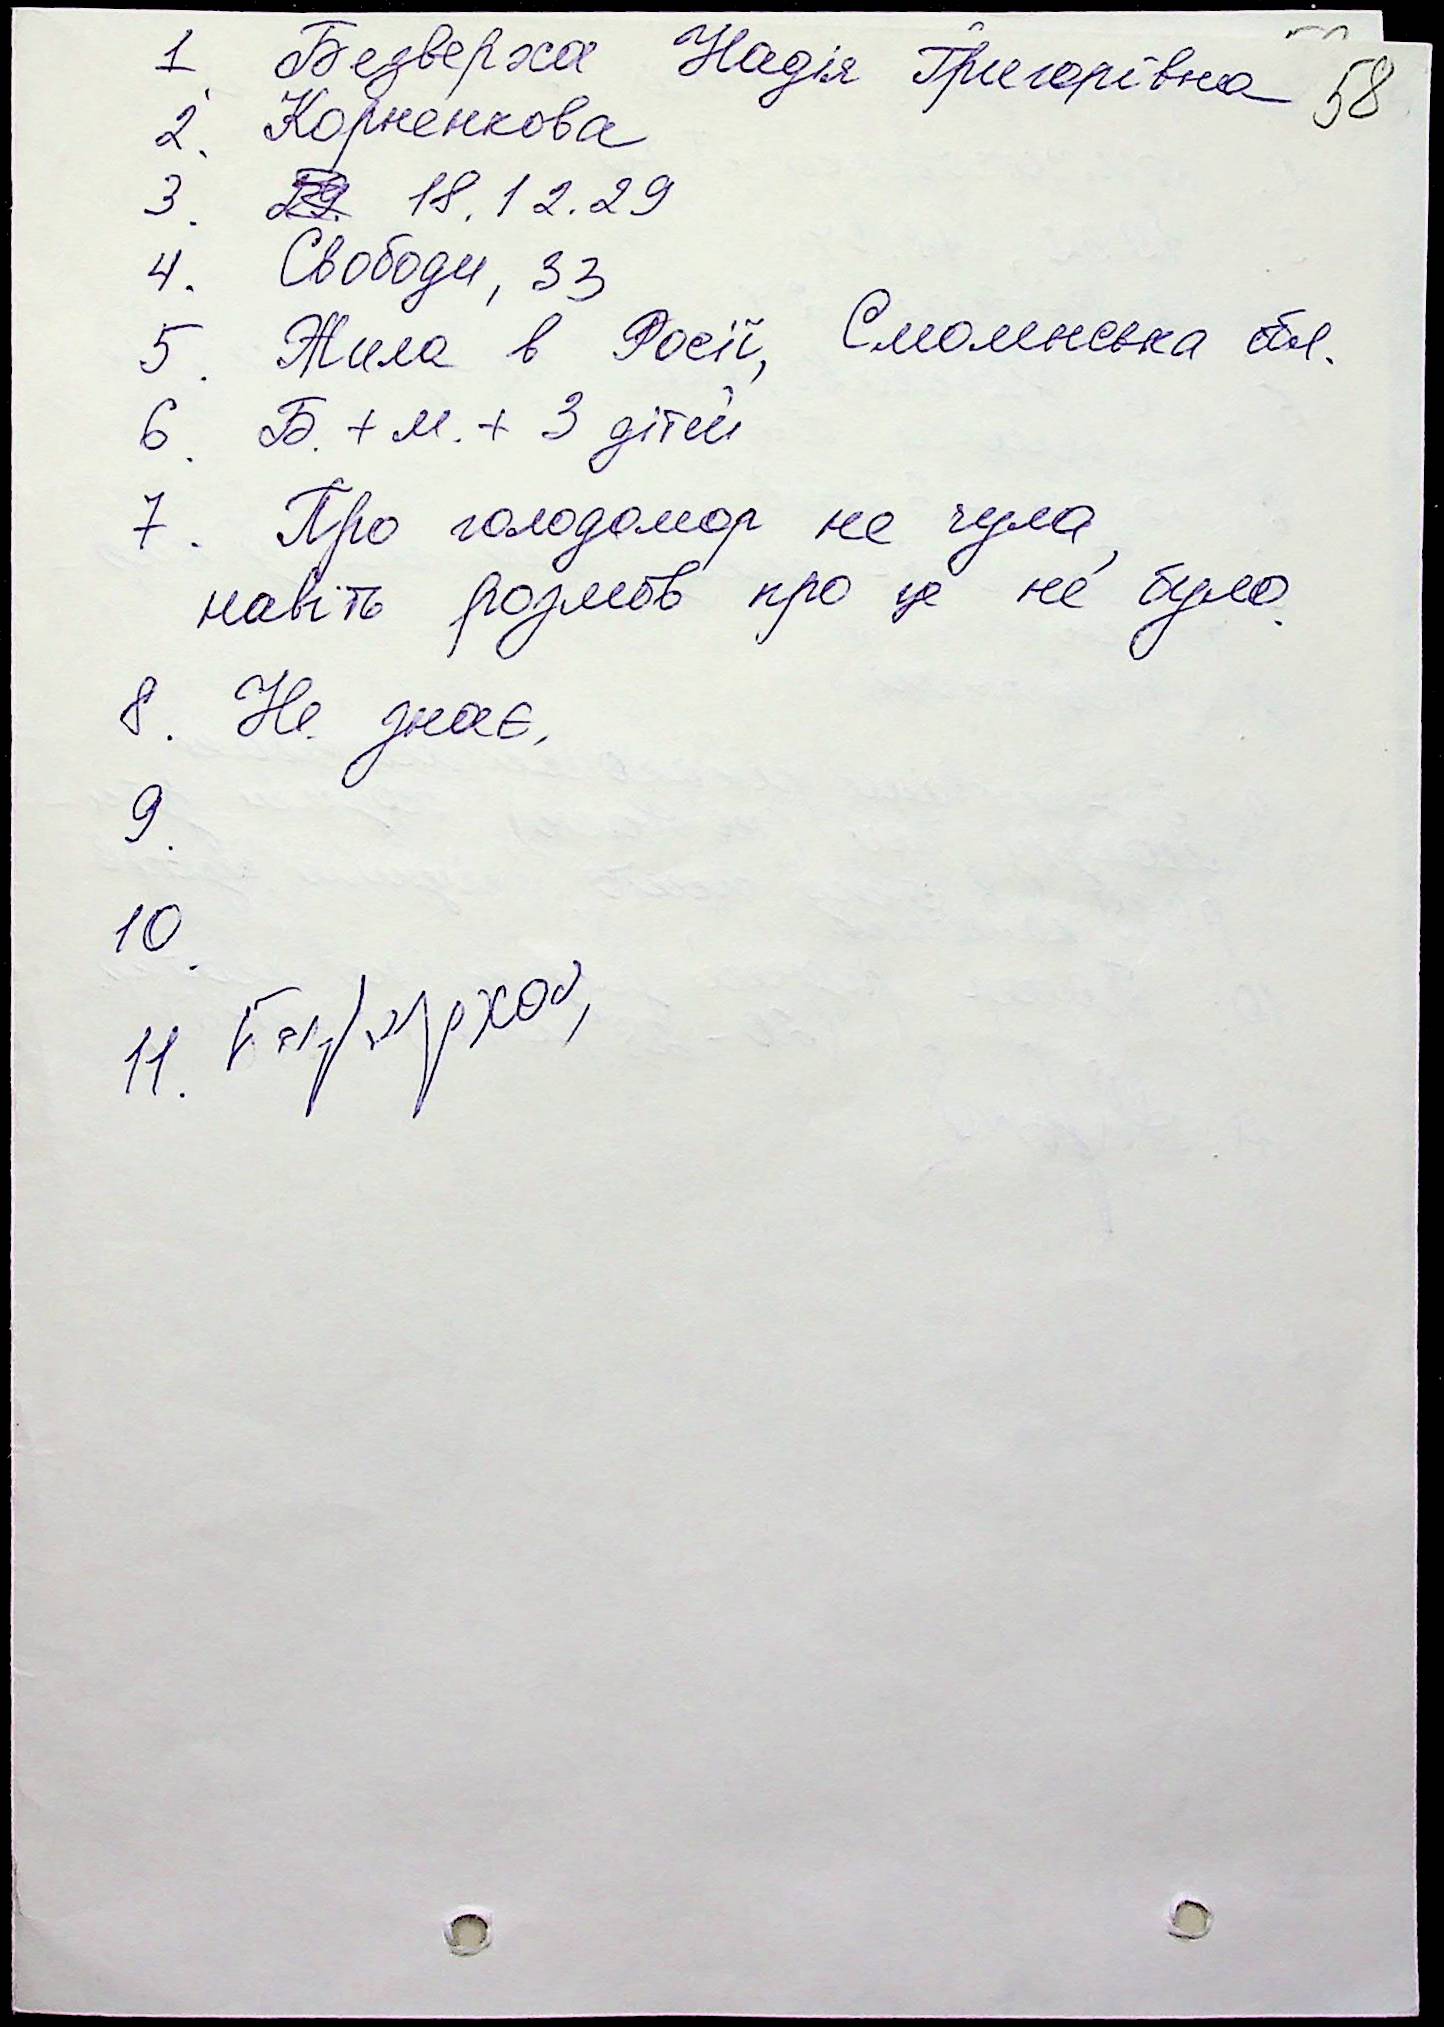 58
1. Безверха Надія Григорівна
2. Корненкова
3. 18.12.29
4. Свободи, 33
5. Жила в Росії, Смоленська обл.
6. Б. + м. + 3 дітей
7. Про голодомор не чула,
навіть розмов про це не було.
8. Не знає.
9.
10.
11.